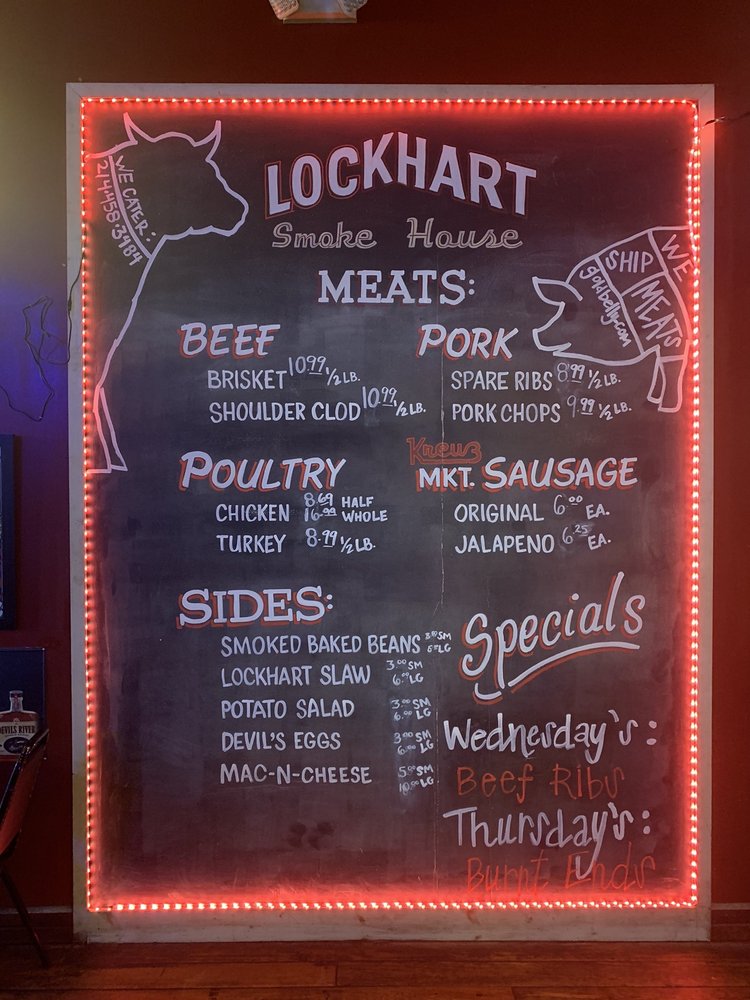 LOCKHART
Smoke House
WE CATER:
214.458.3984
WE
SHIP
MEATS
goldbelly.com
MEATS:
BEEF
BRISKET 10.99 1/2 LB.
SHOULDER CLOD 10.99 1/2 LB.
PORK
SPARE RIBS 8.99 1/2 LB.
PORK CHOPS 9.99 1/2 LB.
POULTRY
CHICKEN 8.69 HALF
16.00 WHOLE
TURKEY 8.99 1/2 LB.
Kreuz
MKT. SAUSAGE
ORIGINAL 6.00 EA.
JALAPENO 6.25 EA.
SIDES:
SMOKED BAKED BEANS 3.00 SM
6.00 LG
LOCKHART SLAW 3.00 SM
6.00 LG
POTATO SALAD 3.00 SM
6.00 LG
DEVIL'S EGGS 3.00 SM
6.00 LG
MAC-N-CHEESE 5.00 SM
10.00 LG
Specials
Wednesday's:
Beef Ribs
Thursday's:
Burnt Ends
DEVILS RIVER